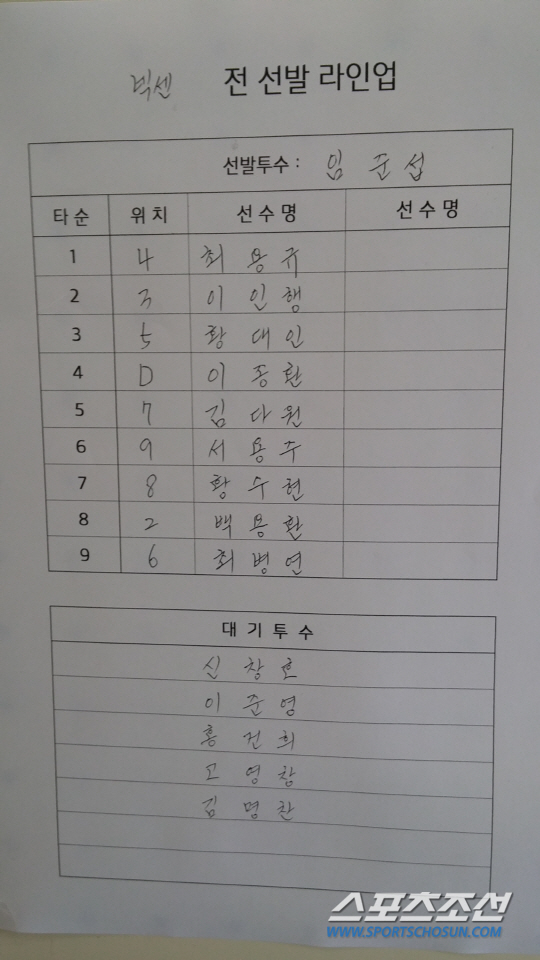 넥센 전 선발 라인업
선발투수 : 임 준 섭
타순 위치 선수명 선수명
1 4 최 용 규
2 3 이 인 행
3 5 황 대 인
4 D 이 종 환
5 7 김 다 원
6 9 서 용 주
7 8 황 수 현
8 2 백 용 환
9 6 최 병 연
대 기 투 수
신 창 호
이 준 영
홍 건 희
고 영 창
김 명 찬
스포츠조선
WWW.SPORTSCHOSUN.COM